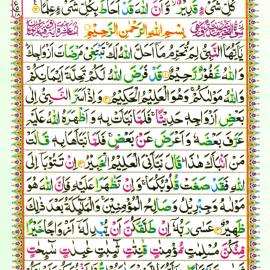 كُلِّ شَيْءٍ قَدِيرٌ وَأَنَّ اللَّهَ قَدْ أَحَاطَ بِكُلِّ شَيْءٍ عِلْمًا
بِسْمِ اللَّهِ الرَّحْمَٰنِ الرَّحِيمِ
يَا أَيُّهَا النَّبِيُّ لِمَ تُحَرِّمُ مَا أَحَلَّ اللَّهُ لَكَ تَبْتَغِي مَرْضَاتَ أَزْوَاجِكَ
وَاللَّهُ غَفُورٌ رَّحِيمٌ قَدْ فَرَضَ اللَّهُ لَكُمْ تَحِلَّةَ أَيْمَانِكُمْ
وَاللَّهُ مَوْلَاكُمْ وَهُوَ الْعَلِيمُ الْحَكِيمُ وَإِذْ أَسَرَّ النَّبِيُّ إِلَىٰ
بَعْضِ أَزْوَاجِهِ حَدِيثًا فَلَمَّا نَبَّأَتْ بِهِ وَأَظْهَرَهُ اللَّهُ عَلَيْهِ
عَرَّفَ بَعْضَهُ وَأَعْرَضَ عَن بَعْضٍ فَلَمَّا نَبَّأَهَا بِهِ قَالَتْ
مَنْ أَنبَأَكَ هَٰذَا قَالَ نَبَّأَنِيَ الْعَلِيمُ الْخَبِيرُ إِن تَتُوبَا إِلَى
اللَّهِ فَقَدْ صَغَتْ قُلُوبُكُمَا وَإِن تَظَاهَرَا عَلَيْهِ فَإِنَّ اللَّهَ هُوَ
مَوْلَاهُ وَجِبْرِيلُ وَصَالِحُ الْمُؤْمِنِينَ وَالْمَلَائِكَةُ بَعْدَ ذَٰلِكَ
ظَهِيرٌ عَسَىٰ رَبُّهُ إِن طَلَّقَكُنَّ أَن يُبْدِلَهُ أَزْوَاجًا خَيْرًا
مِّنكُنَّ مُسْلِمَاتٍ مُّؤْمِنَاتٍ قَانِتَاتٍ تَائِبَاتٍ عَابِدَاتٍ سَائِحَاتٍ